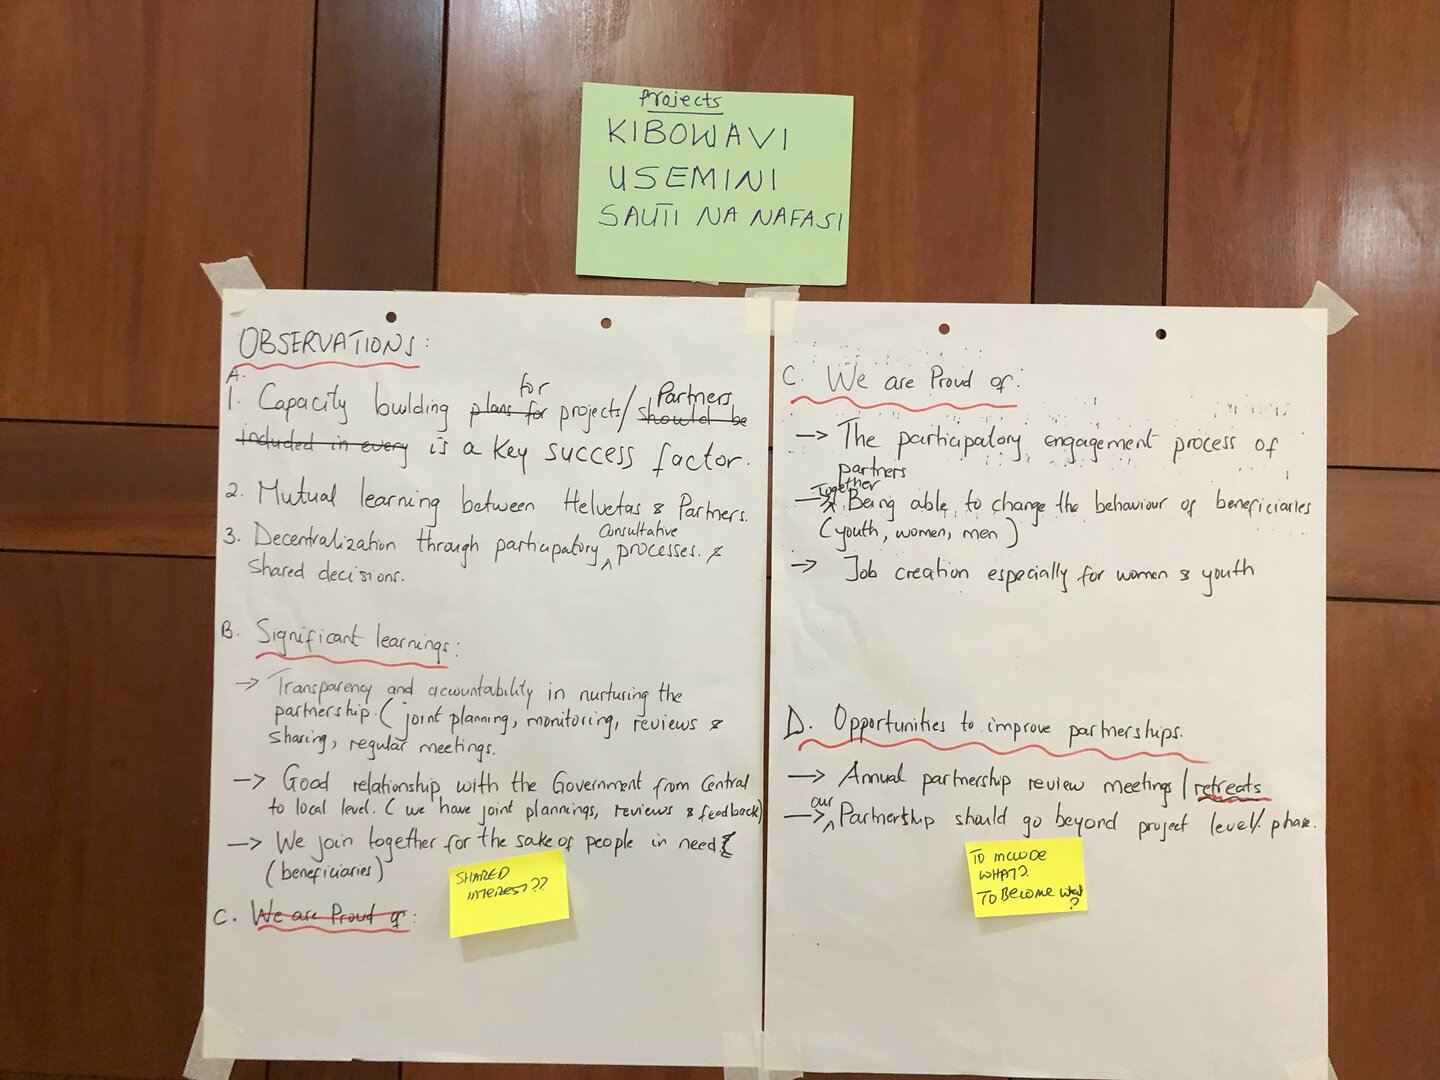 Projects
KIBOWAVI
USEMINI
SAUTI NA NAFASI
OBSERVATIONS:
A.
for Partners
1. Capacity building plans for projects/ should be
included in every is a key success factor.
2. Mutual learning between Helvetas & Partners.
Consultative
3. Decentralization through participatory ^ processes. &
Shared decisions.
B. Significant learnings:
→ Transparency and accountability in nurturing the
partnership. ( joint planning, monitoring, reviews &
sharing, regular meetings.
→ Good relationship with the Government from Central
to local level. ( we have joint plannings, reviews & feedback)
→ We join together for the sake of people in need
(beneficiaries)
SHARED
INTEREST??
C. We are Proud of:
C. We are Proud of:
→ The participatory engagement process of
partners
Together
→ ^ Being able, to change the behaviour of beneficiaries
(youth, women, men)
→ Job creation especially for women & youth
D. Opportunities to improve partnerships.
→ Annual partnership review meetings / retreats
our
→ ^ Partnership should go beyond project level/ phase.
TO INCLUDE
WHAT?
TO BECOME WHAT
?